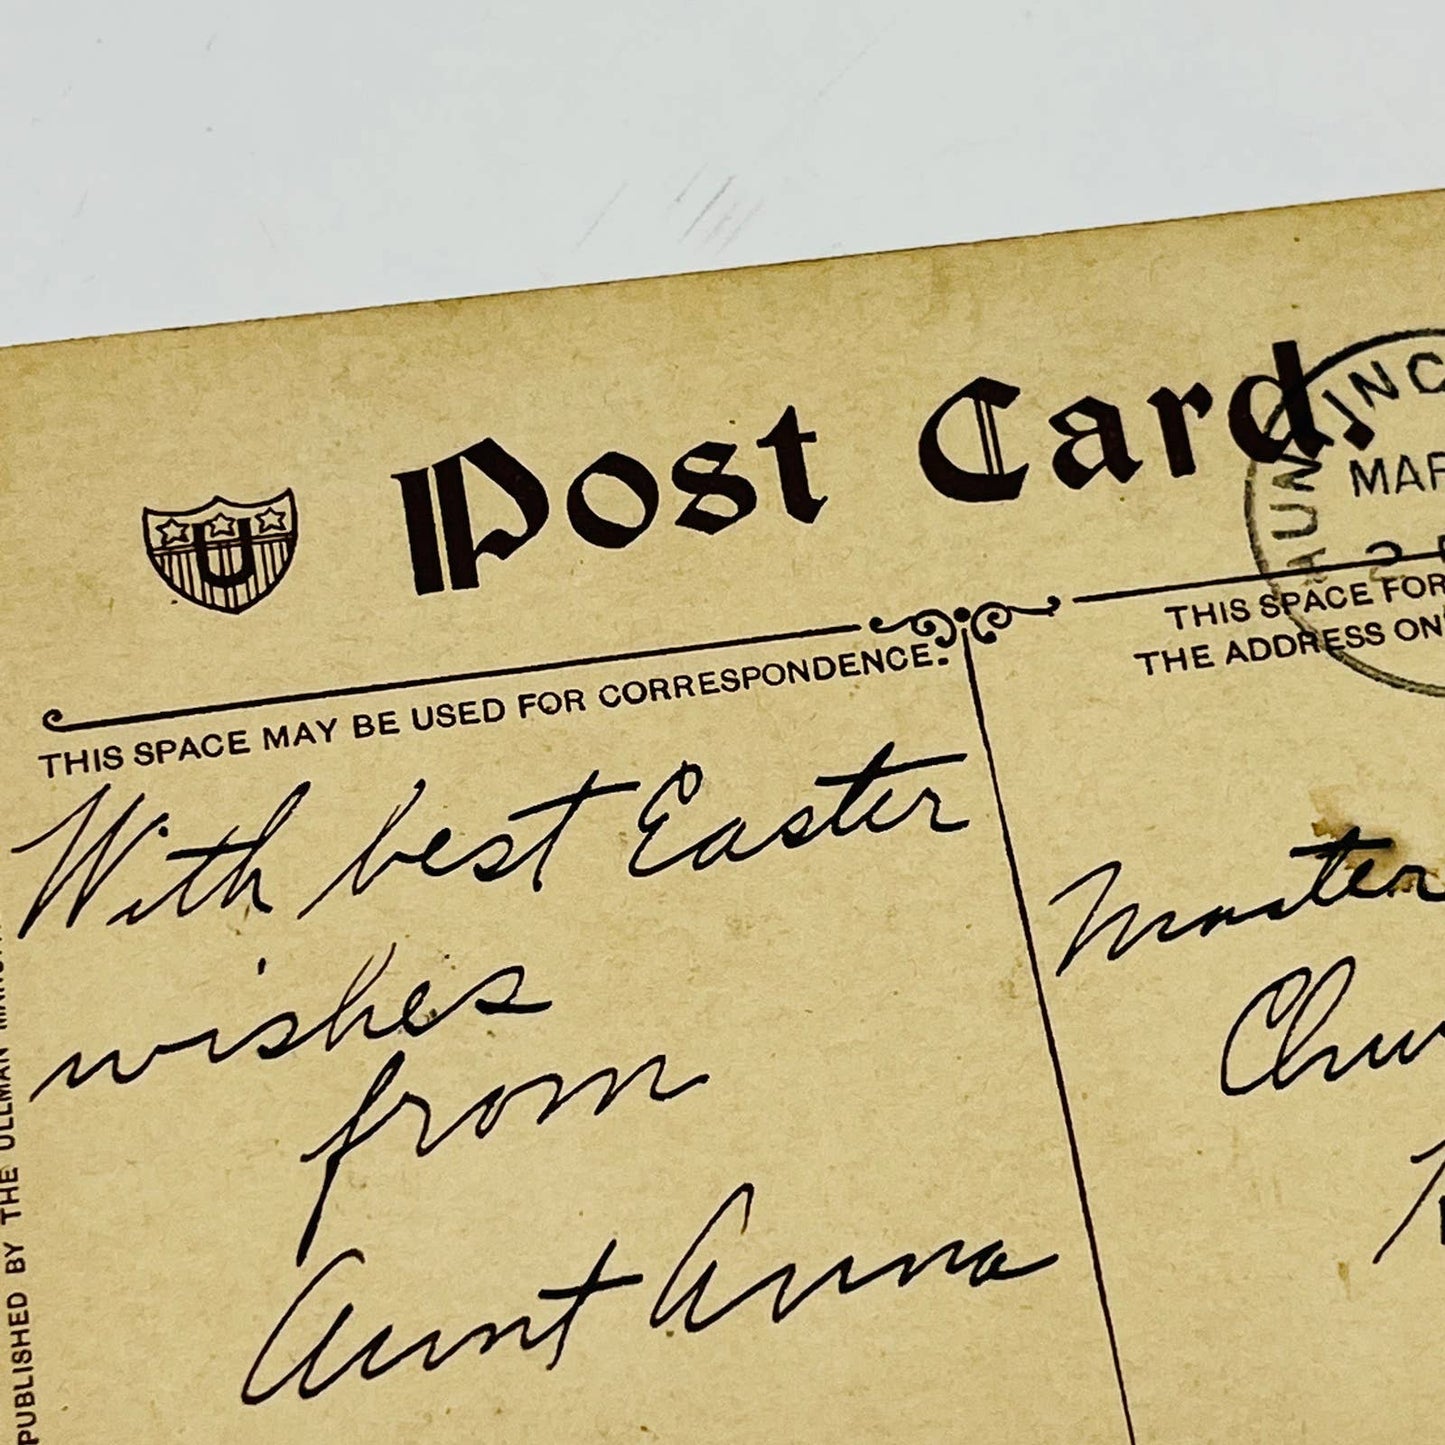 Post Card.
U
MAR
THIS SPACE MAY BE USED FOR CORRESPONDENCE.
THIS SPACE FOR
THE ADDRESS
With best Easter
wishes
from
Aunt Anna
Master
PUBLISHED BY THE ULLMAN